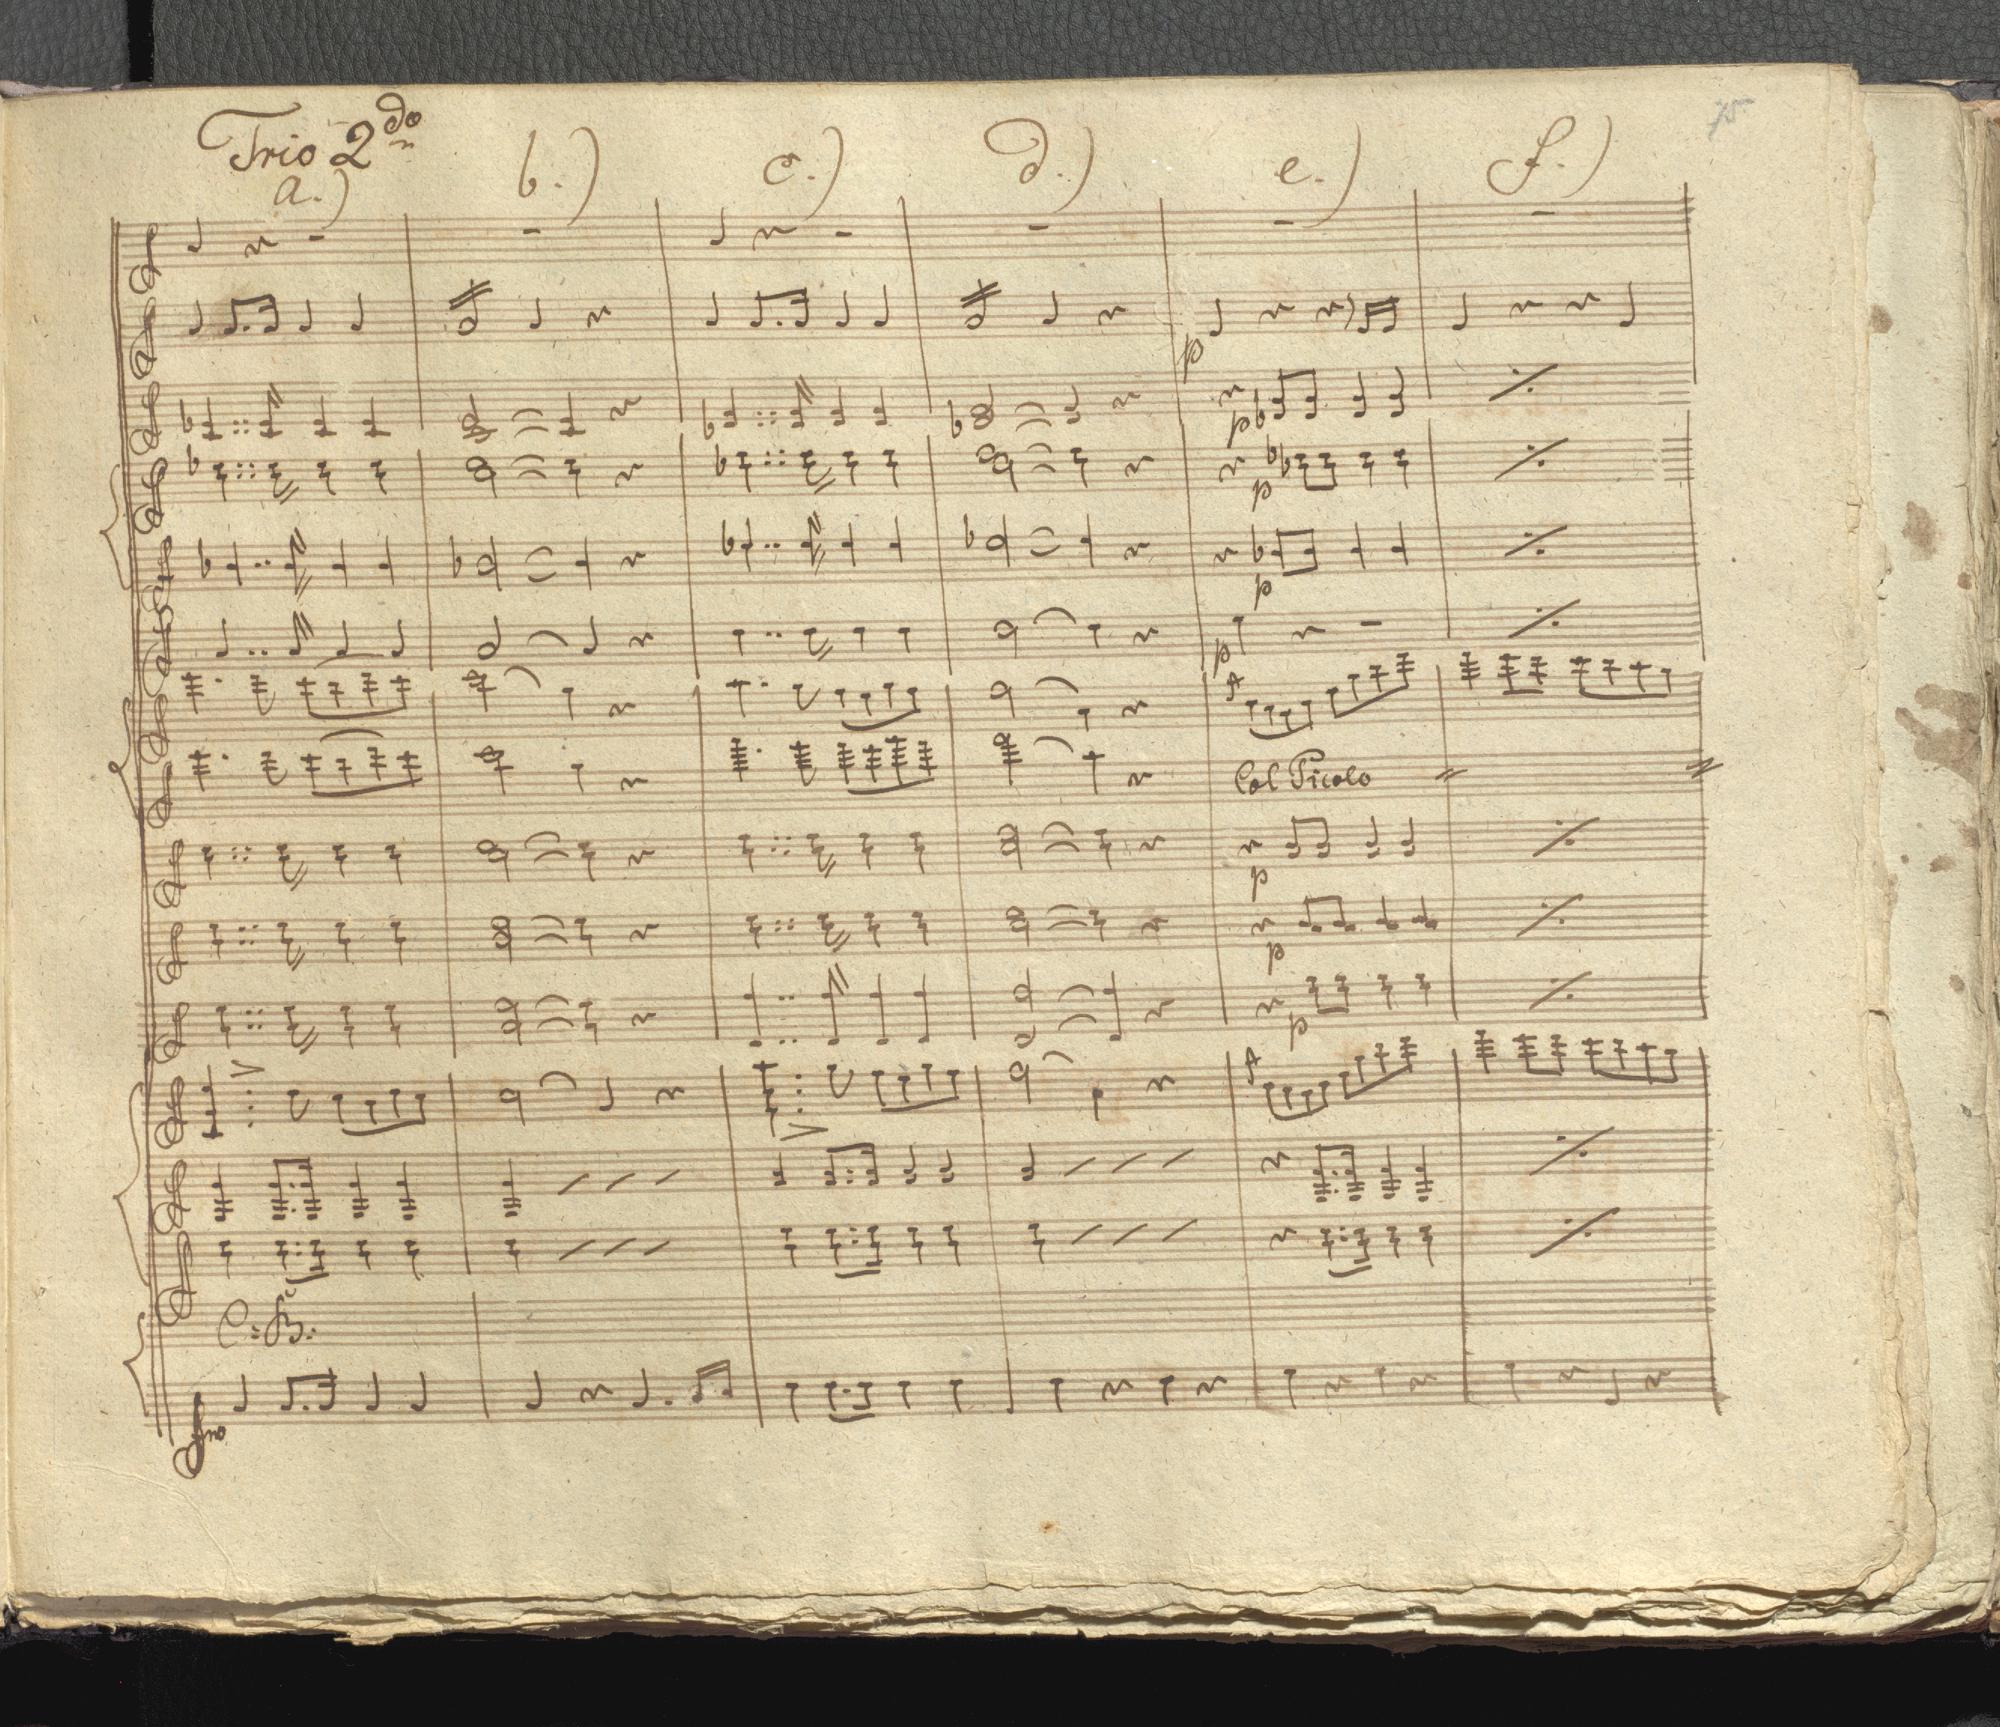 Trio 2do
a.) b.) c.) d.) e.) f.)
75
p
p
p
p
p
Col Picolo
p
p
p
C: B: